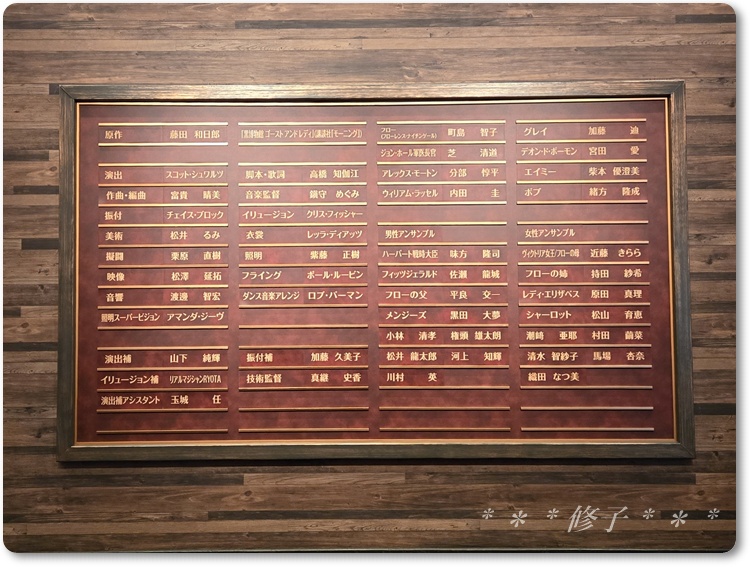 原作 藤田 和日郎
演出 スコット・シュワルツ
作曲・編曲 富貴 晴美
振付 チェイス・ブロック
美術 松井 るみ
擬闘 栗原 直樹
映像 松澤 延拓
音響 渡邊 智宏
照明スーパービジョン アマンダ・ジーヴ
演出補 山下 純輝
イリュージョン補 リアルマジシャンRYOTA
演出補アシスタント 玉城 任
『黒博物館 ゴースト アンド レディ』(講談社「モーニング」)
脚本・歌詞 高橋 知伽江
音楽監督 鎮守 めぐみ
イリュージョン クリス・フィッシャー
衣裳 レッラ・ディアッツ
照明 紫藤 正樹
フライング ポール・ルービン
ダンス音楽アレンジ ロブ・バーマン
振付補 加藤 久美子
技術監督 真継 史香
フロー
(フローレンス・ナイチンゲール) 町島 智子
ジョン・ホール軍医長官 芝 清道
アレックス・モートン 分部 惇平
ウィリアム・ラッセル 内田 圭
男性アンサンブル
ハーバート戦時大臣 味方 隆司
フィッツジェラルド 佐瀬 龍城
フローの父 平良 交一
メンジーズ 黒田 大夢
小林 清孝 権頭 雄太朗
松井 龍太郎 河上 知輝
川村 英
グレイ 加藤 迪
デオン・ド・ボーモン 宮田 愛
エイミー 柴本 優澄美
ボブ 緒方 隆成
女性アンサンブル
ヴィクトリア女王/フローの母 近藤 きらら
フローの姉 持田 紗希
レディ・エリザベス 原田 真理
シャーロット 松山 育恵
潮崎 亜耶 村田 繭菜
清水 智紗子 馬場 杏奈
織田 なつ美
* * *修子* * *